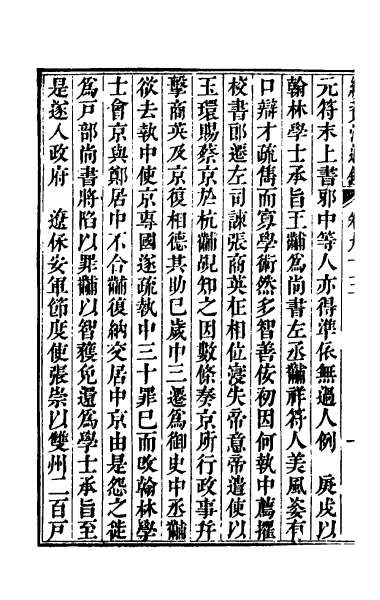 續資治通鑑 卷九十三 一
元符末上書邪中等人亦得準依無過人例 庚戌以
翰林學士承旨王黼爲尚書左丞黼祥符人美風姿有
口辯才疏雋而寡學術然多智善佞初因何執中薦擢
校書郎遷左司諫張商英在相位寖失帝意帝遣使以
玉環賜蔡京於杭黼覘知之因數條奏京所行政事幷
擊商英及京復相德其助巳歲中三遷爲御史中丞黼
欲去執中使京專國遂疏執中三十罪巳而改翰林學
士會京與鄭居中不合黼復納交居中京由是怨之徙
爲戸部尚書將陷以罪黼以智獲免還爲學士承旨至
是遂入政府 遼休安軍節度使張崇以雙州二百戸